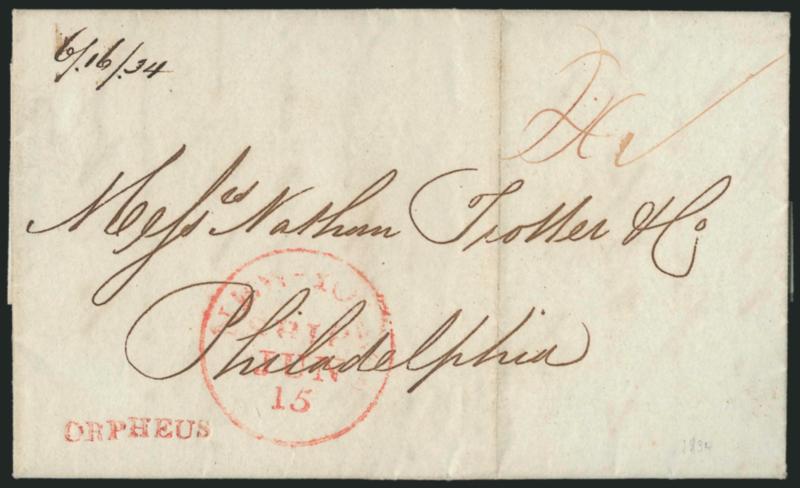 6/.16/.34
Messrs Nathan Trotter & Co
Philadelphia
NEW-YORK
SHIP
JUN
15
ORPHEUS
1834